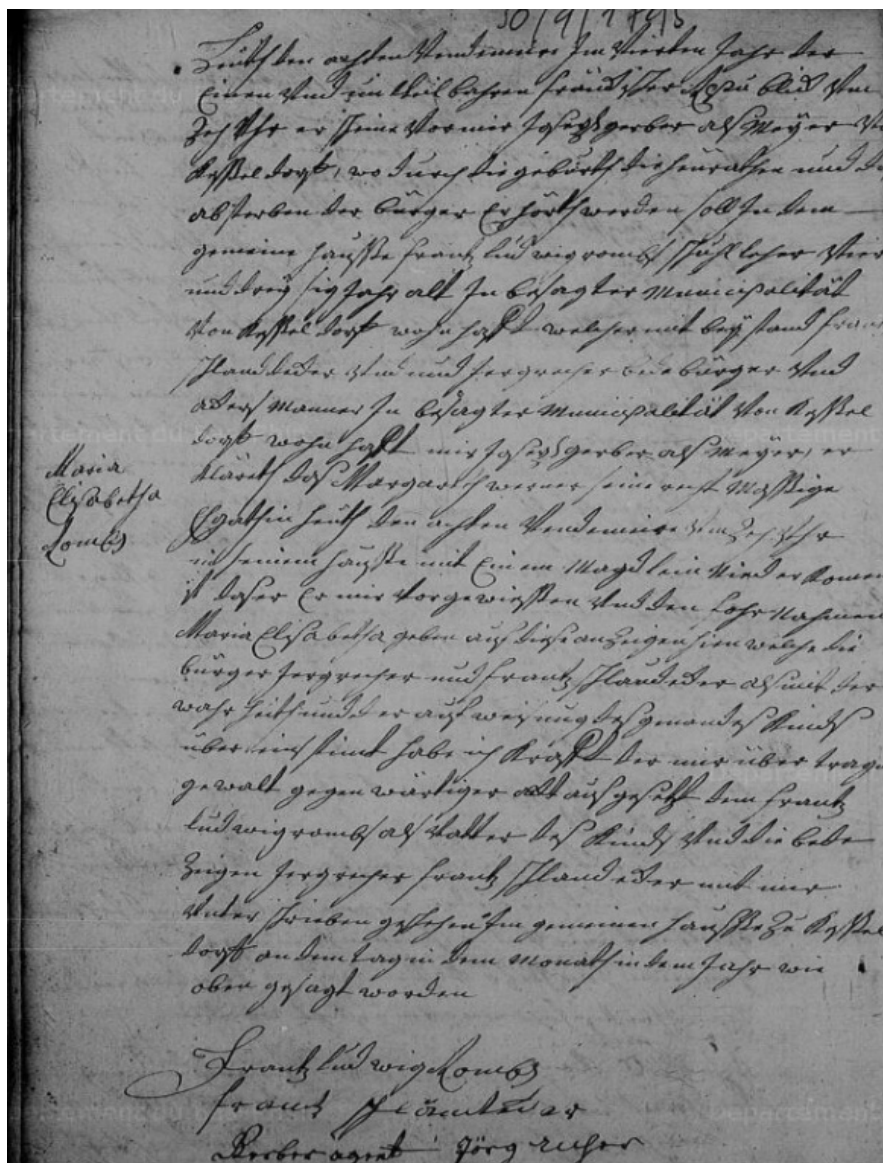 30/9/1795
Heuth den achten Vendemiere Im Vierten Jahr der
Einen Vnd un theil bahren fränckischer Republick Vm
Zeh Vhr er scheine Vor mir Joseph gerber als Meyer Von
Kesseldorff, wo durch die geburth die heurathen und die
absterben der bürger Er hörth werden soll In dem
gemeine hausse frantz ludwig rombs schuhl leher Vier
und dreysig Jahr alt In besagter Municipalität
Von Kesseldorff wohn hafft welcher mit beystand frantz
und Jerg recher bede bürger Vnd
ackers Manner In besagter Municipalität Von Kessel
dorff wohn hafft mir Joseph gerber als Meyer, er
kläreth das Margareth werner seine recht Mässige
Egathin heuth den achten Vendemiere Vm Zeh Vhr
in seinem hausse mit Einem Magdlein Nieder Komen
ist daser Er mir Vorgewiessen Vnd den Nahmen
Maria Elisabetha geben auf diese anzeigen hien welche die
bürger Jerg recher und frantz als mit der
wahrheith und der auf weisung des Kinds
über einstimt habe ich Krafft der mir über tragen
gewalt gegen wärtiger ackt auf gesetzt dem frantz
ludwig rombs als Vatter des Kinds Vnd die bede
Zeigen Jerg recher frantz mit mir
Vnter schrieben geschehen Im gemeinen hausse Zu Kessel
dorff an dem tag in dem Monath in dem Jahr wie
oben gesagt worden
Maria
Elisabetha
Rombs
Frantz ludwig Rombs
frantz
Gerber agent Jörg recher